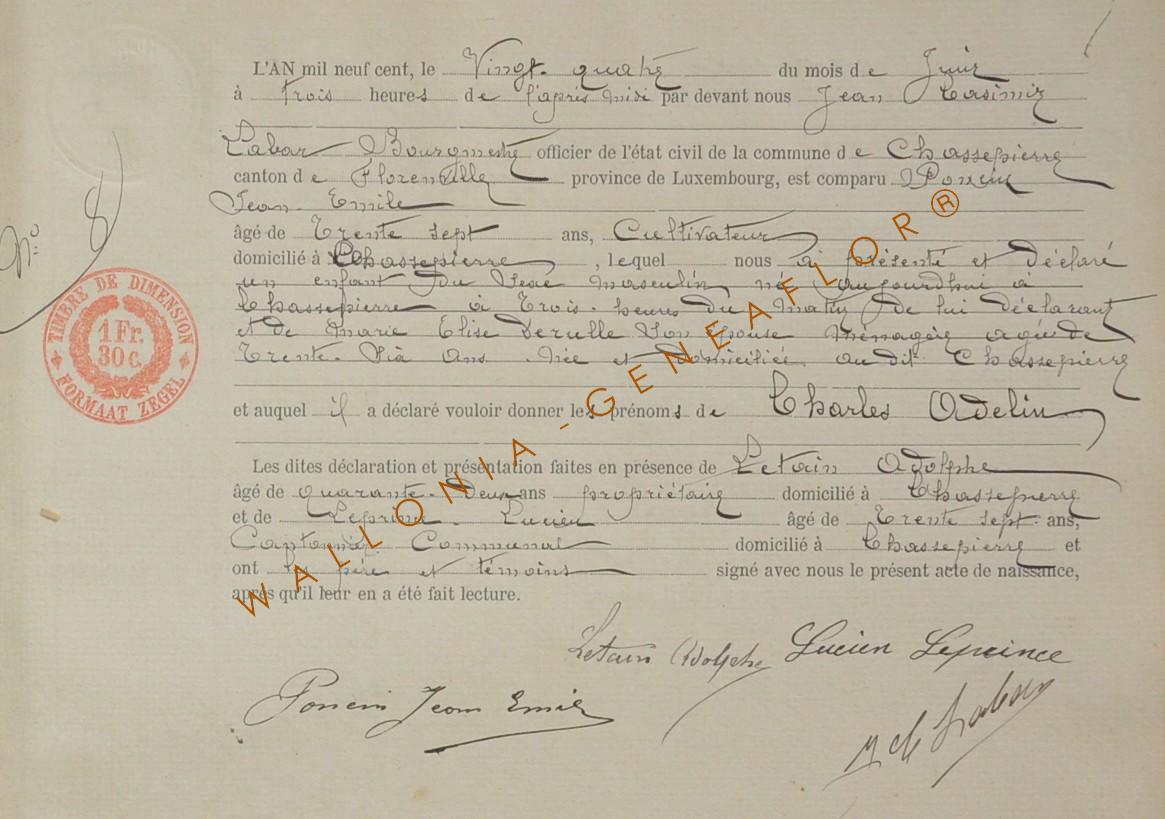 L'AN mil neuf cent, le Vingt-quatre du mois de Juin
à trois heures de l'après midi par devant nous Jean Casimir
Labar Bourgmestre officier de l'état civil de la commune de Chassepierre
canton de Florenville province de Luxembourg, est comparu Poncin
Jean-Emile
âgé de Trente sept ans, Cultivateur
domicilié à Chassepierre, lequel nous a présenté et déclaré
un enfant du Sexe masculin né aujourdhui à
Chassepierre à Trois heures du matin de lui déclarant
et de Marie Elise Derulle Son épouse ménagère agée de
Trente-Six ans Née et domiciliée audit Chassepierre
et auquel il a déclaré vouloir donner les prénoms de Charles Adelin
Les dites déclaration et présentation faites en présence de Letain Adolphe
âgé de quarante-Deux ans propriétaire domicilié à Chassepierre
et de Leprince Lucien âgé de Trente sept ans,
Cantonnier Communal domicilié à Chassepierre et
ont les père et témoins signé avec nous le présent acte de naissance,
après qu'il leur en a été fait lecture.
N° 8
TIMBRE DE DIMENSION
1 Fr.
30 c.
FORMAAT ZEGEL
Letain Adolphe Lucien Leprince
Poncin Jean Emile
Labar
WALLONIA-GENEAFLOR®